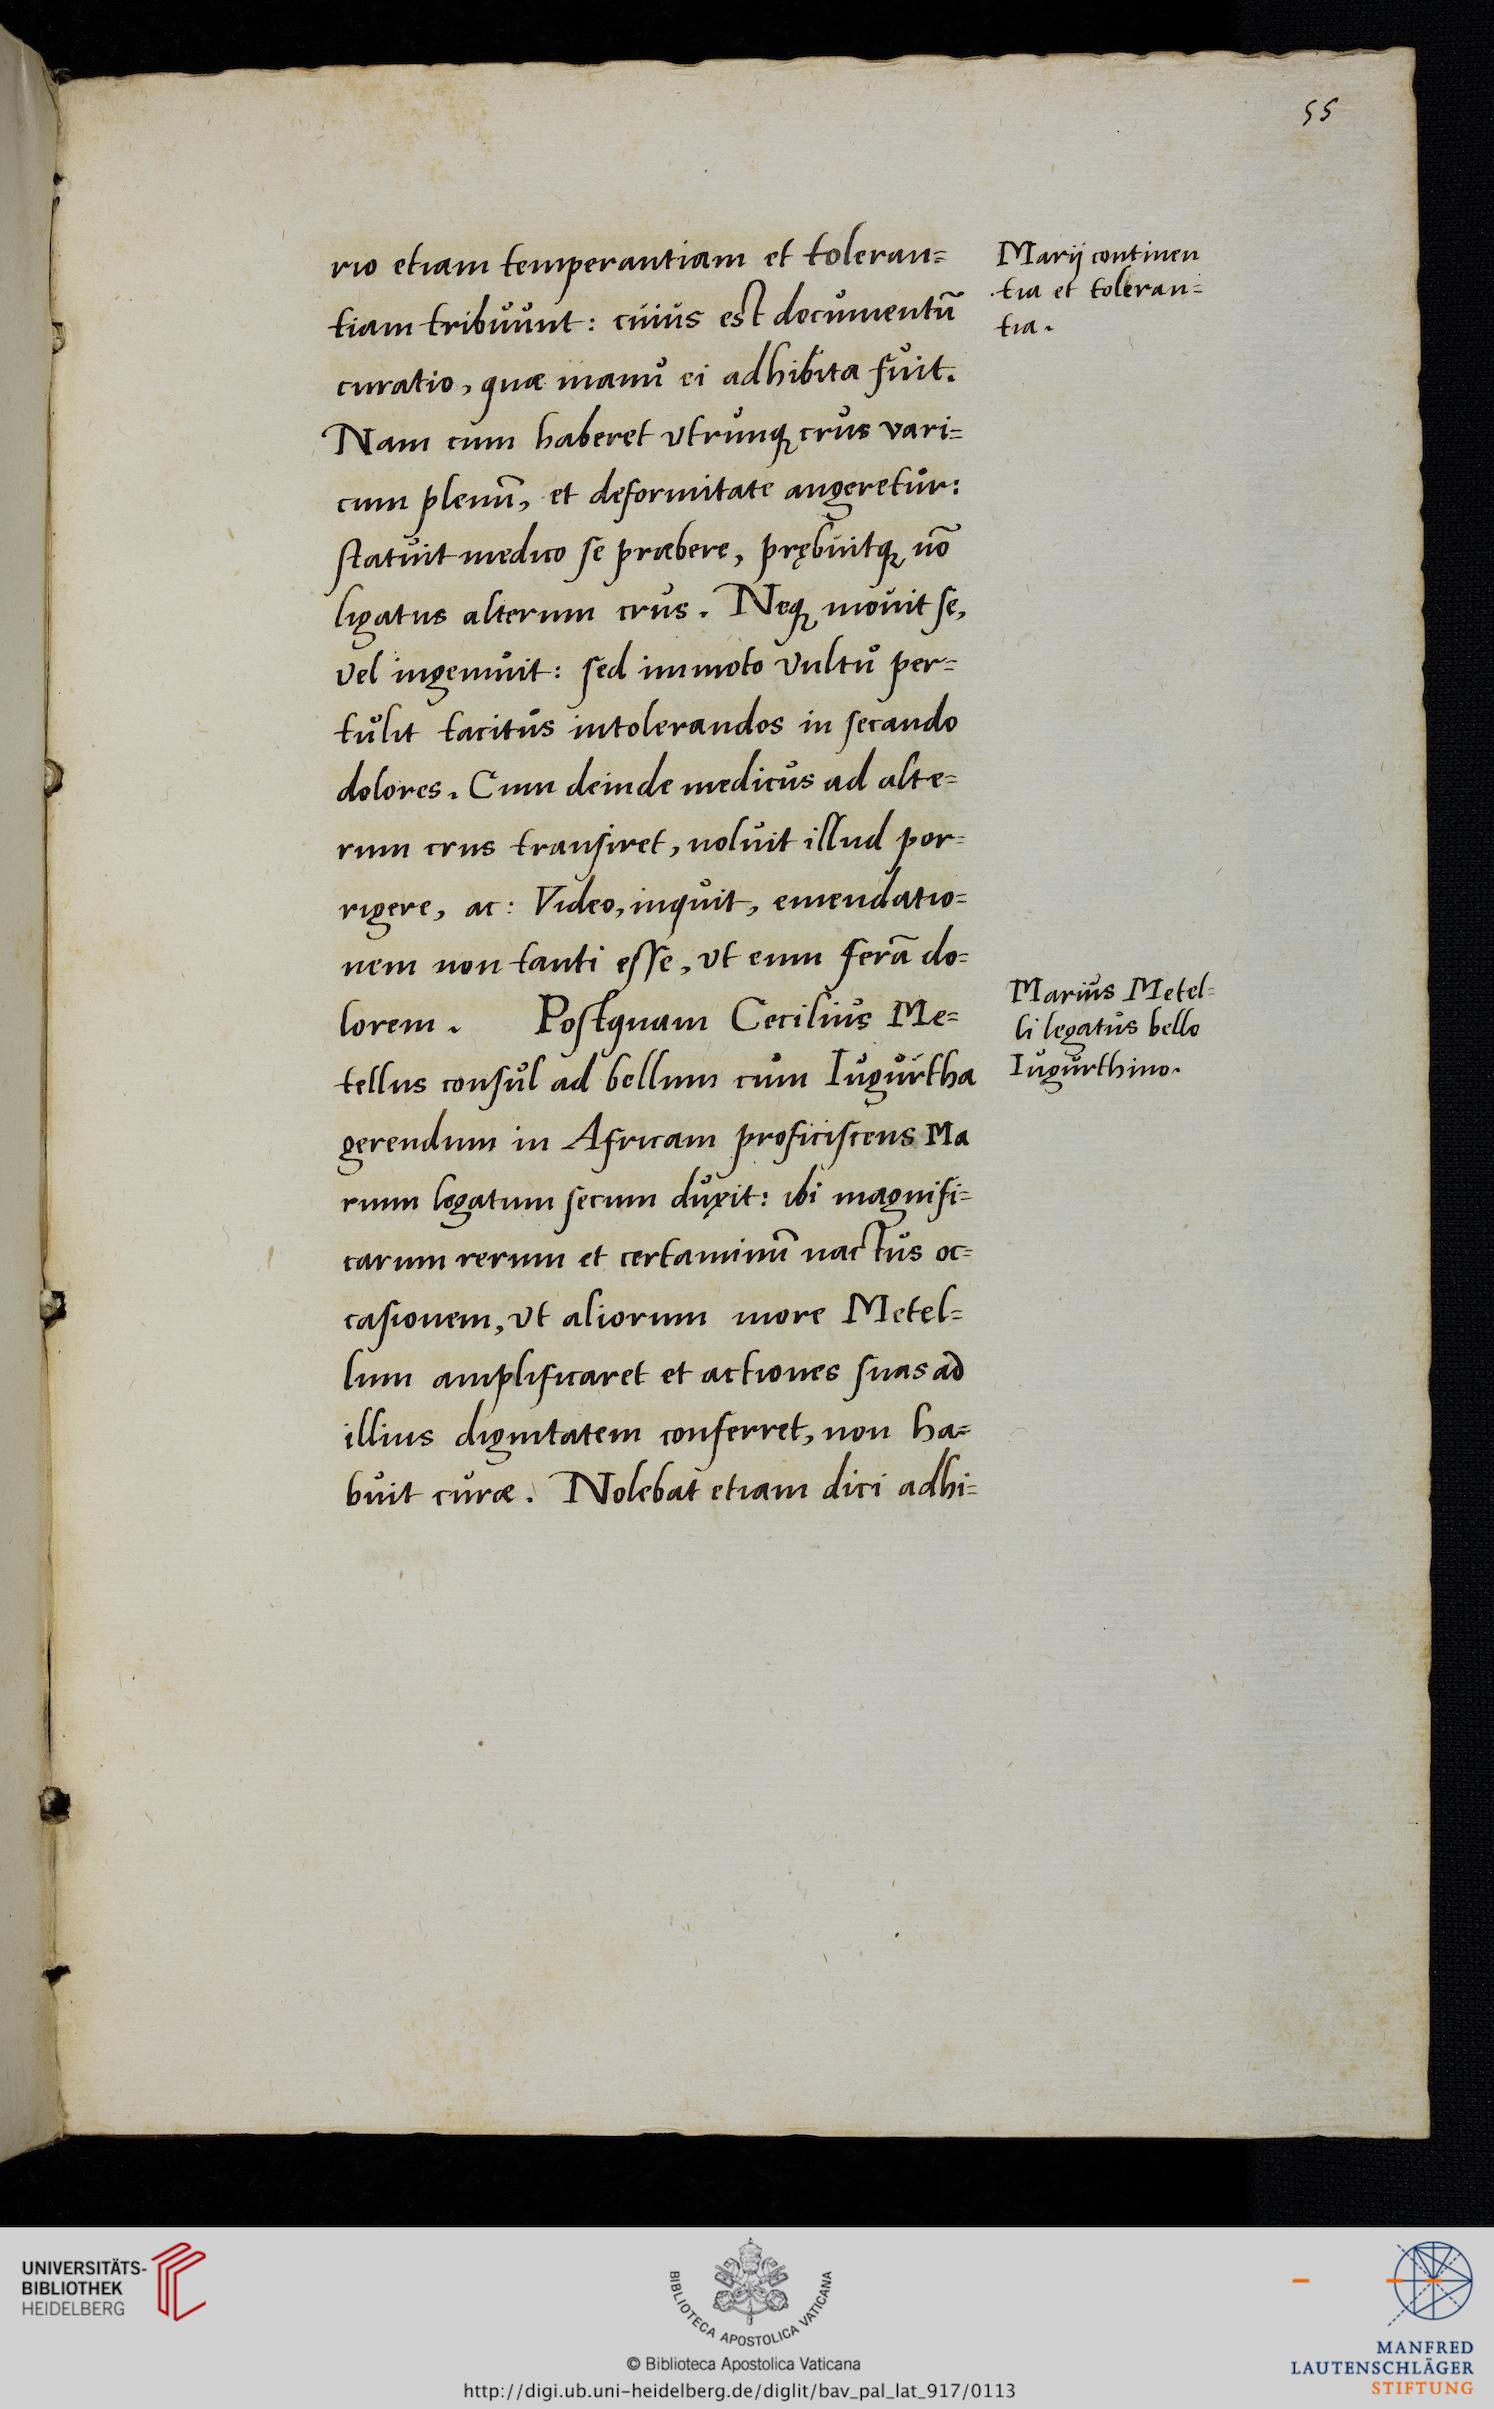 55
rio etiam temperantiam et toleran=
tiam tribuunt: cuius est documentũ
curatio, quæ manu ei adhibita fuit.
Nam cum haberet vtrunq; crus vari=
cum plenũ, et deformitate angeretur:
statuit medico se præbere, prębuitq; nõ
ligatus alterum crus. Neq; mouit se,
vel ingemuit: sed immoto vultu per=
tulit tacitus intolerandos in secando
dolores. Cum deinde medicus ad alte=
rum crus transiret, noluit illud por=
rigere, ac: Video, inquit, emendatio=
nem non tanti esse, vt eum ferã do=
lorem. Postquam Cecilius Me=
tellus consul ad bellum cum Iugurtha
gerendum in Africam proficiscens Ma
rium legatum secum duxit: ibi magnifi=
carum rerum et certaminũ nactus oc=
casionem, vt aliorum more Metel=
lum amplificaret et actiones suas ad
illius dignitatem conferret, non ha=
buit curæ. Nolebat etiam dici adhi=
Marij continen
tia et toleran=
tia.
Marius Metel=
li legatus bello
Iugurthino.
UNIVERSITÄTS-
BIBLIOTHEK
HEIDELBERG
BIBLIOTECA APOSTOLICA VATICANA
© Biblioteca Apostolica Vaticana
http://digi.ub.uni-heidelberg.de/diglit/bav_pal_lat_917/0113
MANFRED
LAUTENSCHLÄGER
STIFTUNG